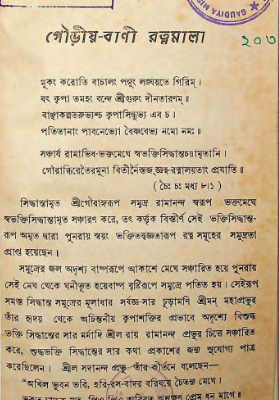 GAUDIYA MIS
২০৩
গৌড়ীয়-বাণী রত্নমালা
মূকং করোতি বাচালং পঙ্গুং লঙ্ঘয়তে গিরিম্।
যৎ কৃপা তমহং বন্দে শ্রীগুরুং দীনতারণম্॥
বাঞ্ছাকল্পতরুভ্যশ্চ কৃপাসিন্ধুভ্য এব চ।
পতিতানাং পাবনেভ্যো বৈষ্ণবেভ্য নমো নমঃ॥
সঞ্চার্য রামাভিধ-ভক্তমেঘে স্বভক্তিসিদ্ধান্তচয়ামৃতানি।
গৌরাব্ধিরেতৈরমুনা বিতীর্নৈস্তজ্জ্ঞত্ব-রত্নালয়তাং প্রযাতি॥
( চৈঃ চঃ মধ্য ৮।১ )
সিদ্ধান্তামৃত শ্রীগৌরাঙ্গরূপ সমুদ্র রামানন্দ স্বরূপ ভক্তমেঘে
স্বভক্তিসিদ্ধান্তামৃত সঞ্চারণ করে, তৎ কর্ত্তৃক বিস্তীর্ণ সেই ভক্তিসিদ্ধান্ত-
রূপ অমৃত দ্বারা পুনরায় স্বয়ং ভক্তিতত্ত্বজ্ঞতারূপ রত্ন সমূহের সমুদ্রতা
প্রাপ্ত হয়েছেন।
সমুদ্রের জল অদৃশ্য বাষ্পরূপে আকাশে মেঘে সঞ্চারিত হয়ে পুনরায়
সেই মেঘ থেকে ঘনীভূত হয়েবাষ্প বৃষ্টিরূপে সমুদ্রে পতিত হয়। সেইরূপ
সমস্ত সিদ্ধান্ত সমুদ্রের মূলাধার সর্বজ্ঞ-সার চূড়ামণি শ্রীমন্ মহাপ্রভুর
তাঁর হৃদয় থেকে অচিন্তনীয় কৃপাশক্তির প্রভাবে অদৃশ্যে বিশুদ্ধ
ভক্তি সিদ্ধান্তের সার মর্মাদি শ্রীল রায় রামানন্দ প্রভুর চিত্তে সঞ্চারিত
করে, শুদ্ধভক্তি সিদ্ধান্তের সার কথা প্রকাশের জন্য সুযোগ্য পাত্র
করেছিলেন। শ্রীল সদানন্দ প্রভু তাঁর কীর্তনে বলেছেন—
"অখিল ভুবন ভরি, হরি-রস-বাদর বরিষয়ে চৈতন্য মেঘে।
প্রেম ধন মাগে॥